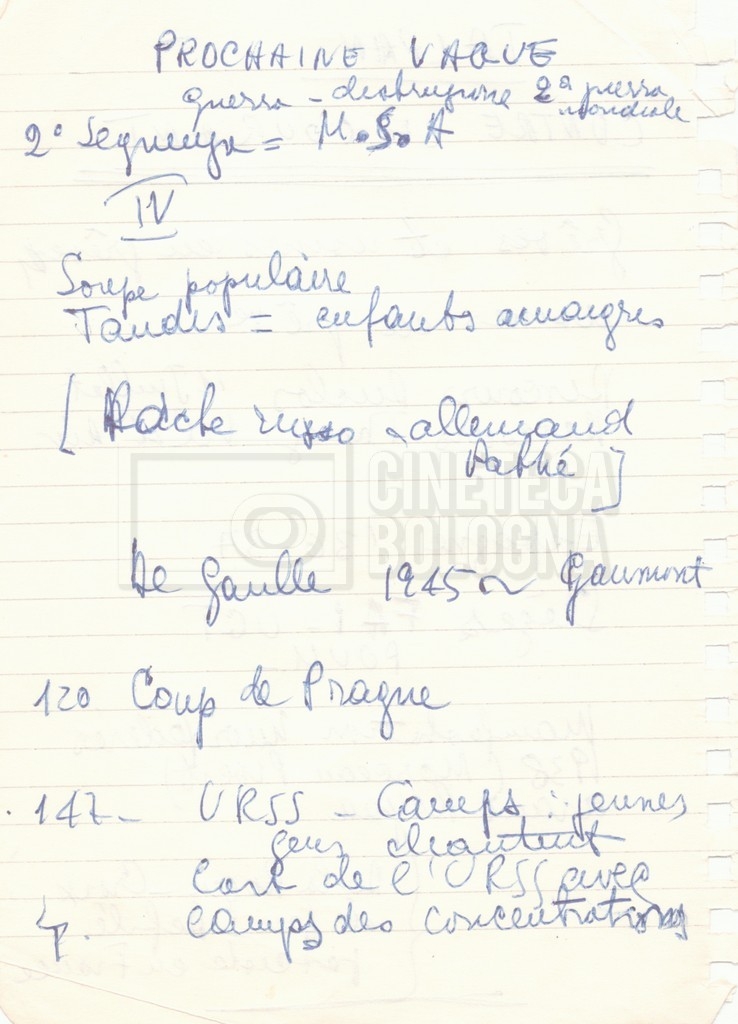 PROCHAINE VAGUE
guerra - distruzione 2ª guerra
mondiale
2° Sequenza = M.S.A
IV
Soupe populaire
Taudis = enfants amaigris
[ Pacte russo - allemand
Pathé ]
CINETECA
BOLOGNA
De Gaulle 1945 ~ Gaumont
120 Coup de Prague
147 - URSS - Camps : jeunes
gens chantent
Cart de l'URSS avec
camps des concentrations